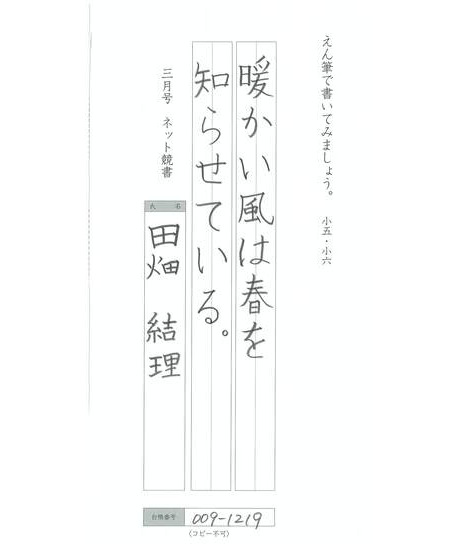 えん筆で書いてみましょう。 小五・小六
暖かい風は春を
知らせている。
三月号 ネット競書
氏 名
田畑 結理
台帳番号 009-1219
(コピー不可)